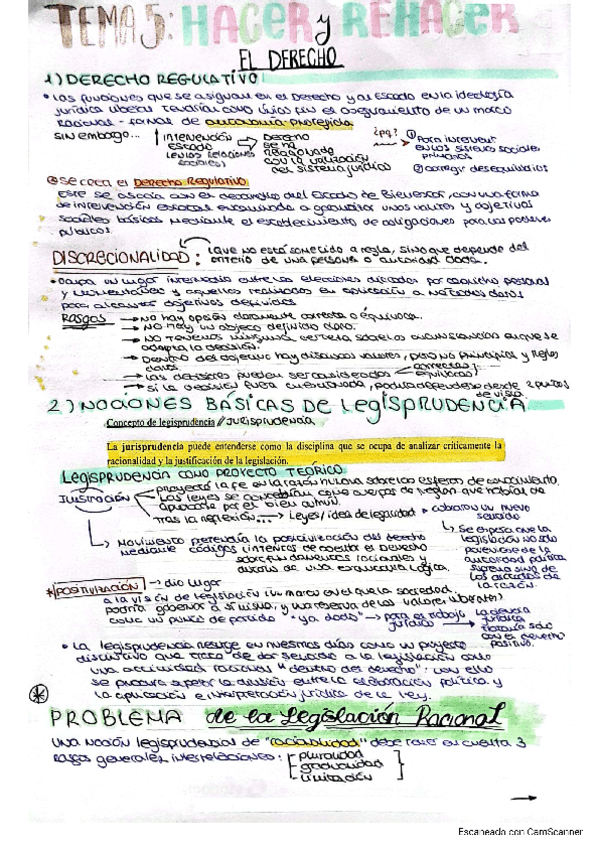 TEMA 5: HACER y REHACER
EL DERECHO
1) DERECHO REGULATIVO
• Las funciones que se asignan en el Derecho y al Estado en la ideología
jurídica liberal tendrían como único fin el aseguramiento de un marco
racional-formal de autonomía protegida
SIN EMBARGO... ↑ Intervención estado en las relaciones sociales → Derecho se ha con la del sistema jurídico ¿pq? ① Para intervenir en los sistemas sociales primarios
② corregir desequilibrios
se crea el Derecho Regulativo
Este se asocia con el desarrollo del Estado de Bienestar, con una forma
de intervención estatal encaminada a garantizar unos valores y objetivos
sociales básicos mediante el establecimiento de obligaciones para los poderes
públicos.
DISCRECIONALIDAD: que no está sometido a regla, sino que depende del
criterio de una persona o autoridad dada.
• Ocupa un lugar intermedio entre las elecciones dictadas por capricho personal
y y aquellas realizadas en aplicación a métodos dados
para alcanzar objetivos definidos
RASGOS → No hay opción claramente correcta o equívoca.
→ No hay un objeto definido claro.
→ No tenemos ninguna certeza sobre las circunstancias en que se
cumpla la decisión.
→ Dentro del objetivo hay diversos valores, pero no principios y reglas
claros.
→ Las decisiones pueden ser consideradas correctas / equívocas
→ Si la decisión fuera cuestionada, podría defenderse desde 2 puntos
de vista.
2) NOCIONES BÁSICAS DE LEGISPRUDENCIA
Concepto de legisprudencia // JURISPRUDENCIA
La jurisprudencia puede entenderse como la disciplina que se ocupa de analizar críticamente la
racionalidad y la justificación de la legislación.
LEGISPRUDENCIA COMO PROYECTO TEÓRICO
ILUSTRACIÓN proyectó la fe en la razón humana sobre las esferas de conocimiento.
Las leyes se concebían como cuerpos de reglas que habían de
aprobarse por el bien común.
Tras la reflexión... → Leyes / idea de legalidad → cobraron un nuevo
sentido
↳ Se expresa que la
legislación no solo
proviene de la
autoridad política
suprema sino de
los dictados de
la razón.
↳ Movimiento pretendía la positivización del derecho
mediante códigos (intentos de asentar el Derecho
sobre fundamentos racionales y
dotarlo de una estructura lógica.
* POSITIVIZACIÓN → dio lugar
a la visión de legislación (un marco en el que la sociedad
podría gobernar a sí misma, y una reserva de los valores liberales)
como un punto de partida "ya dado" → para el trabajo
jurídico → la ciencia
jurídica
trataría solo
con el derecho
positivo.
• La legisprudencia resurge en nuestros días como un proyecto
discursivo que trata de dar sentido a la legislación como
una actividad racional "dentro del derecho": con ello
se procura superar la división entre la elaboración política y
la aplicación e interpretación jurídica de la ley.
PROBLEMA de la Legislación Racional
Una noción legisprudencial de "racionalidad" debe tener en cuenta 3
rasgos generales interrelacionados: [pluralidad
gradualidad
limitación]
→
Escaneado con CamScanner